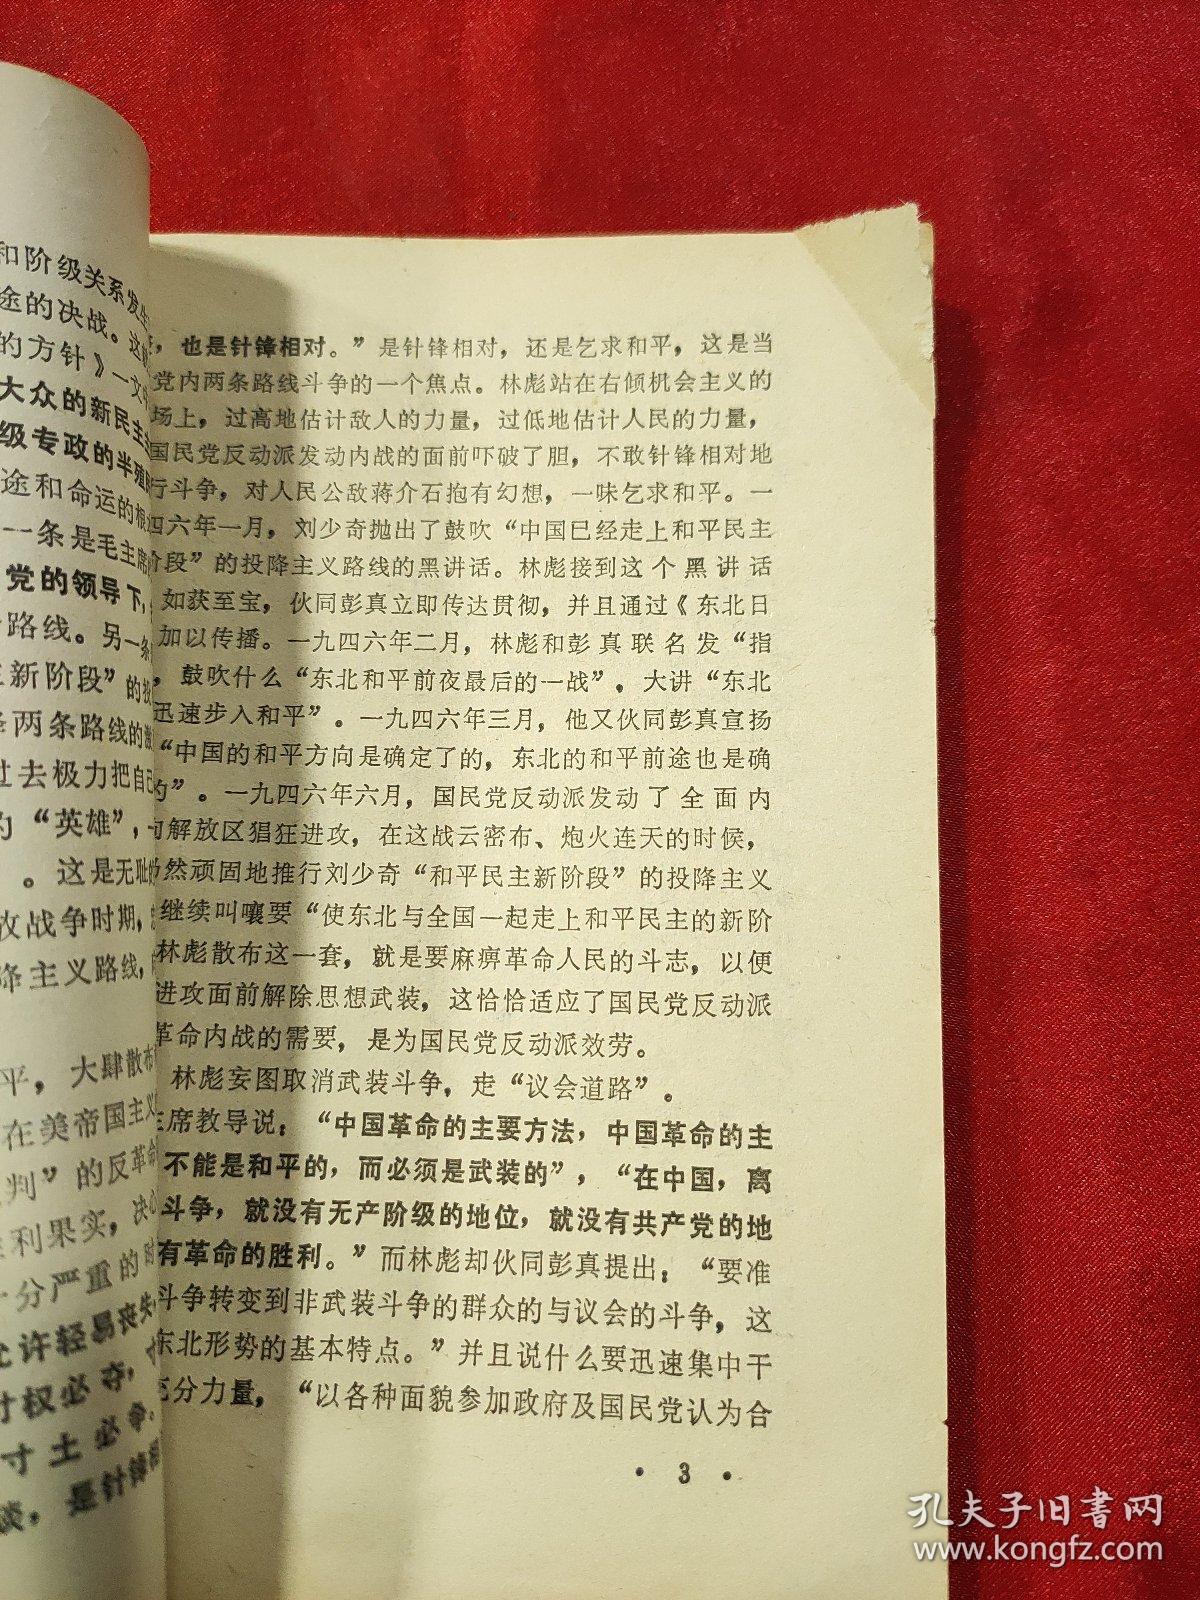 和阶级关系发生
途的决战。这
的方针》一文
大众的新民主
级专政的半殖
途和命运的根
一条是毛主席
党的领导下，
路线。另一条
新阶段”的投
两条路线的激
过去极力把自己
“英雄”，
。这是无耻
放战争时期，
降主义路线，
平，大肆散布
在美帝国主义
判”的反革命
利果实，决心
十分严重的时
允许轻易丧失
寸权必夺，寸
寸土必争。
谈，是针锋
，也是针锋相对。”是针锋相对，还是乞求和平，这是当
党内两条路线斗争的一个焦点。林彪站在右倾机会主义的
场上，过高地估计敌人的力量，过低地估计人民的力量，
国民党反动派发动内战的面前吓破了胆，不敢针锋相对地
行斗争，对人民公敌蒋介石抱有幻想，一味乞求和平。一
四六年一月，刘少奇抛出了鼓吹“中国已经走上和平民主
阶段”的投降主义路线的黑讲话。林彪接到这个黑讲话
如获至宝，伙同彭真立即传达贯彻，并且通过《东北日
加以传播。一九四六年二月，林彪和彭真联名发“指
，鼓吹什么“东北和平前夜最后的一战”，大讲“东北
迅速步入和平”。一九四六年三月，他又伙同彭真宣扬
“中国的和平方向是确定了的，东北的和平前途也是确
的”。一九四六年六月，国民党反动派发动了全面内
向解放区猖狂进攻，在这战云密布、炮火连天的时候，
仍然顽固地推行刘少奇“和平民主新阶段”的投降主义
继续叫嚷要“使东北与全国一起走上和平民主的新阶
林彪散布这一套，就是要麻痹革命人民的斗志，以便
进攻面前解除思想武装，这恰恰适应了国民党反动派
革命内战的需要，是为国民党反动派效劳。
林彪妄图取消武装斗争，走“议会道路”。
主席教导说：“中国革命的主要方法，中国革命的主
不能是和平的，而必须是武装的”，“在中国，离
斗争，就没有无产阶级的地位，就没有共产党的地
有革命的胜利。”而林彪却伙同彭真提出：“要准
斗争转变到非武装斗争的群众的与议会的斗争，这
东北形势的基本特点。”并且说什么要迅速集中干
充分力量，“以各种面貌参加政府及国民党认为合
• 3 •
孔夫子旧书网
www.kongfz.com